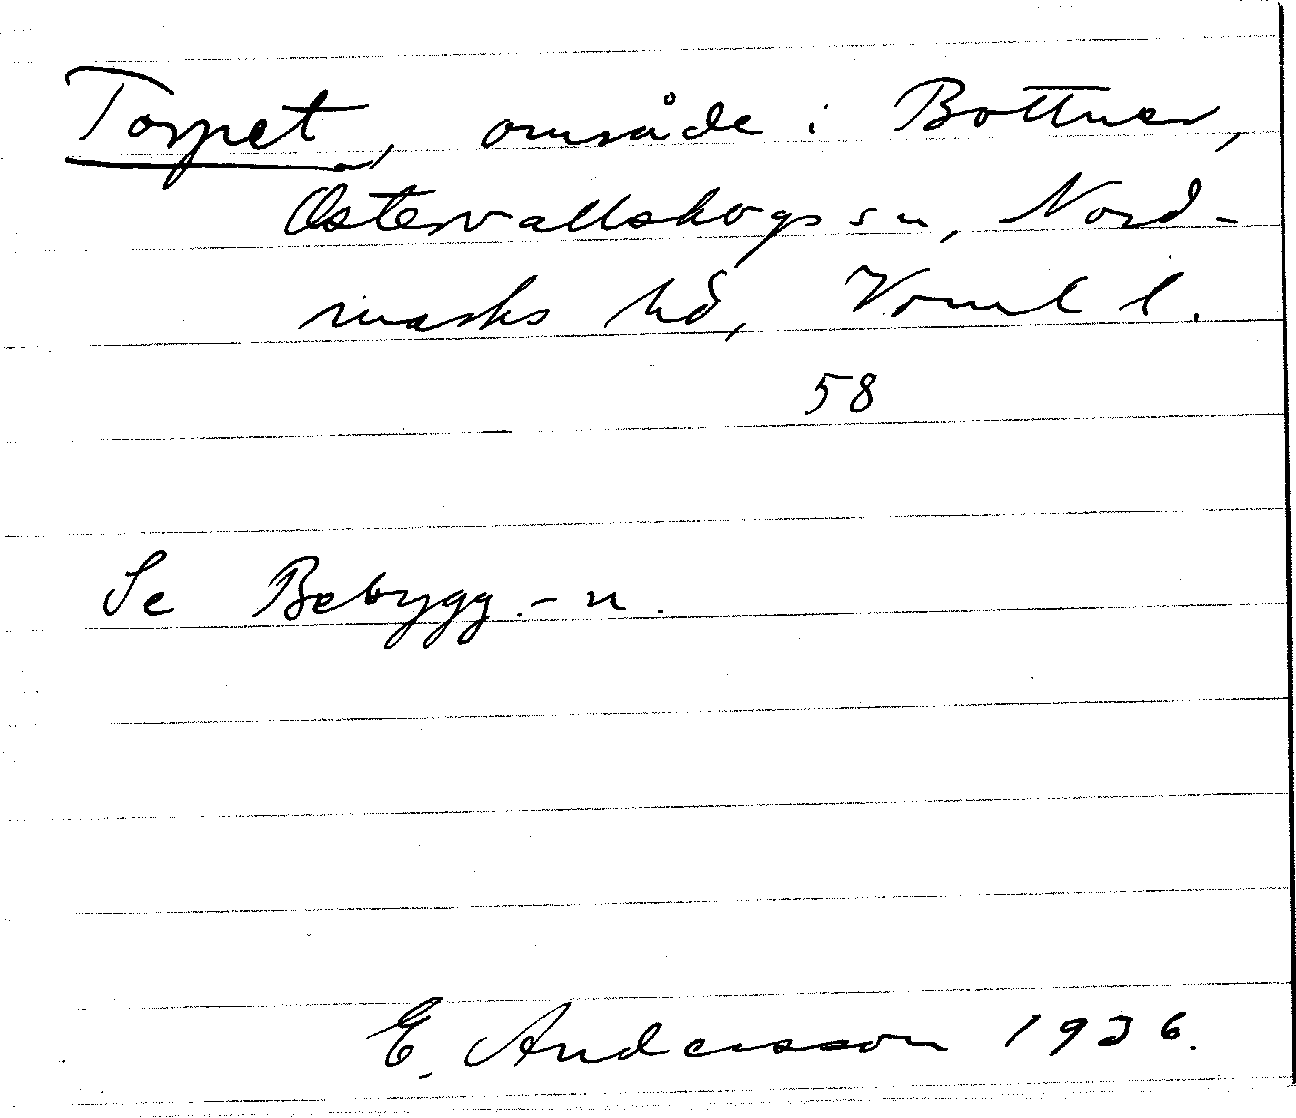 Torpet, område i Bottnen,
Östervallskogs sn, Nord-
marks hd, Vrml l.
58
Se Bebygg.-n.
E. Andersson 1936.